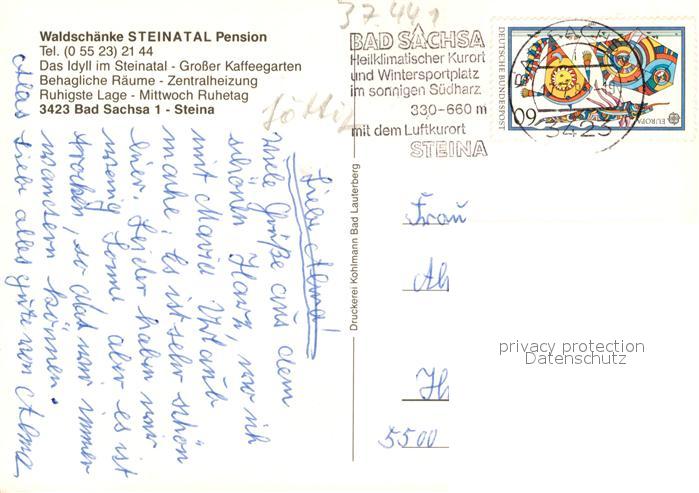 Waldschänke STEINATAL Pension
Tel. (0 55 23) 21 44
Das Idyll im Steinatal - Großer Kaffeegarten
Behagliche Räume - Zentralheizung
Ruhigste Lage - Mittwoch Ruhetag
3423 Bad Sachsa 1 - Steina
37.441
BAD SACHSA
Heilklimatischer Kurort
und Wintersportplatz
im sonnigen Südharz
330-660 m
mit dem Luftkurort
STEINA
3423
DEUTSCHE BUNDESPOST
60
EUROPA
Liebe Alma!
Viele Grüße aus dem
schönen Harz, wo ich
mit Maria Urlaub
mache. Es ist sehr schön
hier. Leider haben wir
wenig Sonne aber es ist
trocken, so das wir immer
wandern können.
Liebe alles gute von Alma
Druckerei Kohlmann Bad Lauterberg
Frau
Ah
H
5500
privacy protection
Datenschutz